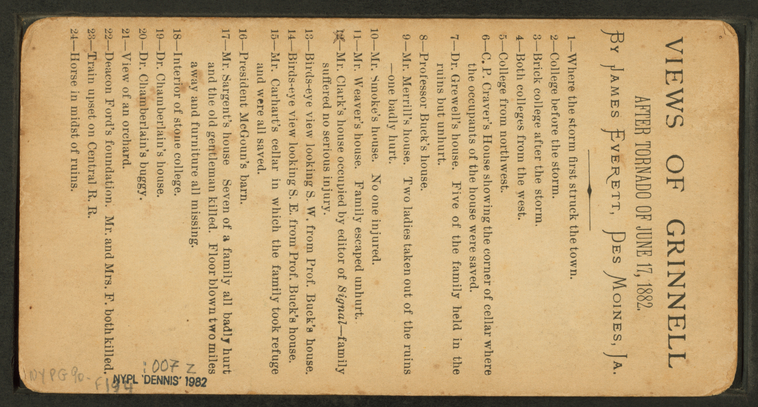 VIEWS OF GRINNELL
AFTER TORNADO OF JUNE 17, 1882.
BY JAMES EVERETT, DES MOINES, IA.
1—Where the storm first struck the town.
2—College before the storm.
3—Brick college after the storm.
4—Both colleges from the west.
5—College from northwest.
6—C. P. Craver's House showing the corner of cellar where
the occupants of the house were saved.
7—Dr. Grewell's house. Five of the family held in the
ruins but unhurt.
8—Professor Buck's house.
9—Mr. Merrill's house. Two ladies taken out of the ruins
—one badly hurt.
10—Mr. Smoke's house. No one injured.
11—Mr. Weaver's house. Family escaped unhurt.
12—Mr. Clark's house occupied by editor of Signal—family
suffered no serious injury.
13—Birds-eye view looking S. W. from Prof. Buck's house.
14—Birds-eye view looking S. E. from Prof. Buck's house.
15—Mr. Carhart's cellar in which the family took refuge
and were all saved.
16—President McGoun's barn.
17—Mr. Sargent's house. Seven of a family all badly hurt
and the old gentleman killed. Floor blown two miles
away and furniture all missing.
18—Interior of stone college.
19—Dr. Chamberlain's house.
20—Dr. Chamberlain's buggy.
21—View of an orchard.
22—Deacon Ford's foundation. Mr. and Mrs. F. both killed.
23—Train upset on Central R. R.
24—Horse in midst of ruins.
007 Z
NYPL 'DENNIS' 1982